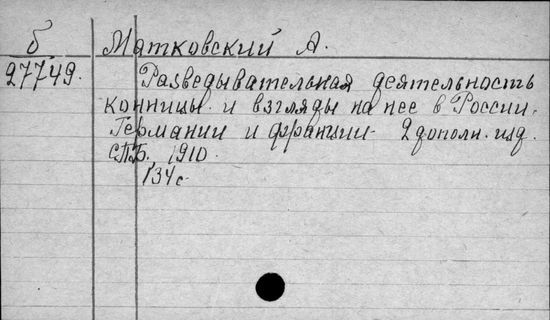 б Матковский А.
27749. Разведывательная деятельность
конницы и взгляды на нее в России,
Германии и Франции. 2 дополн. изд.
СПБ, 1910.
134 с.